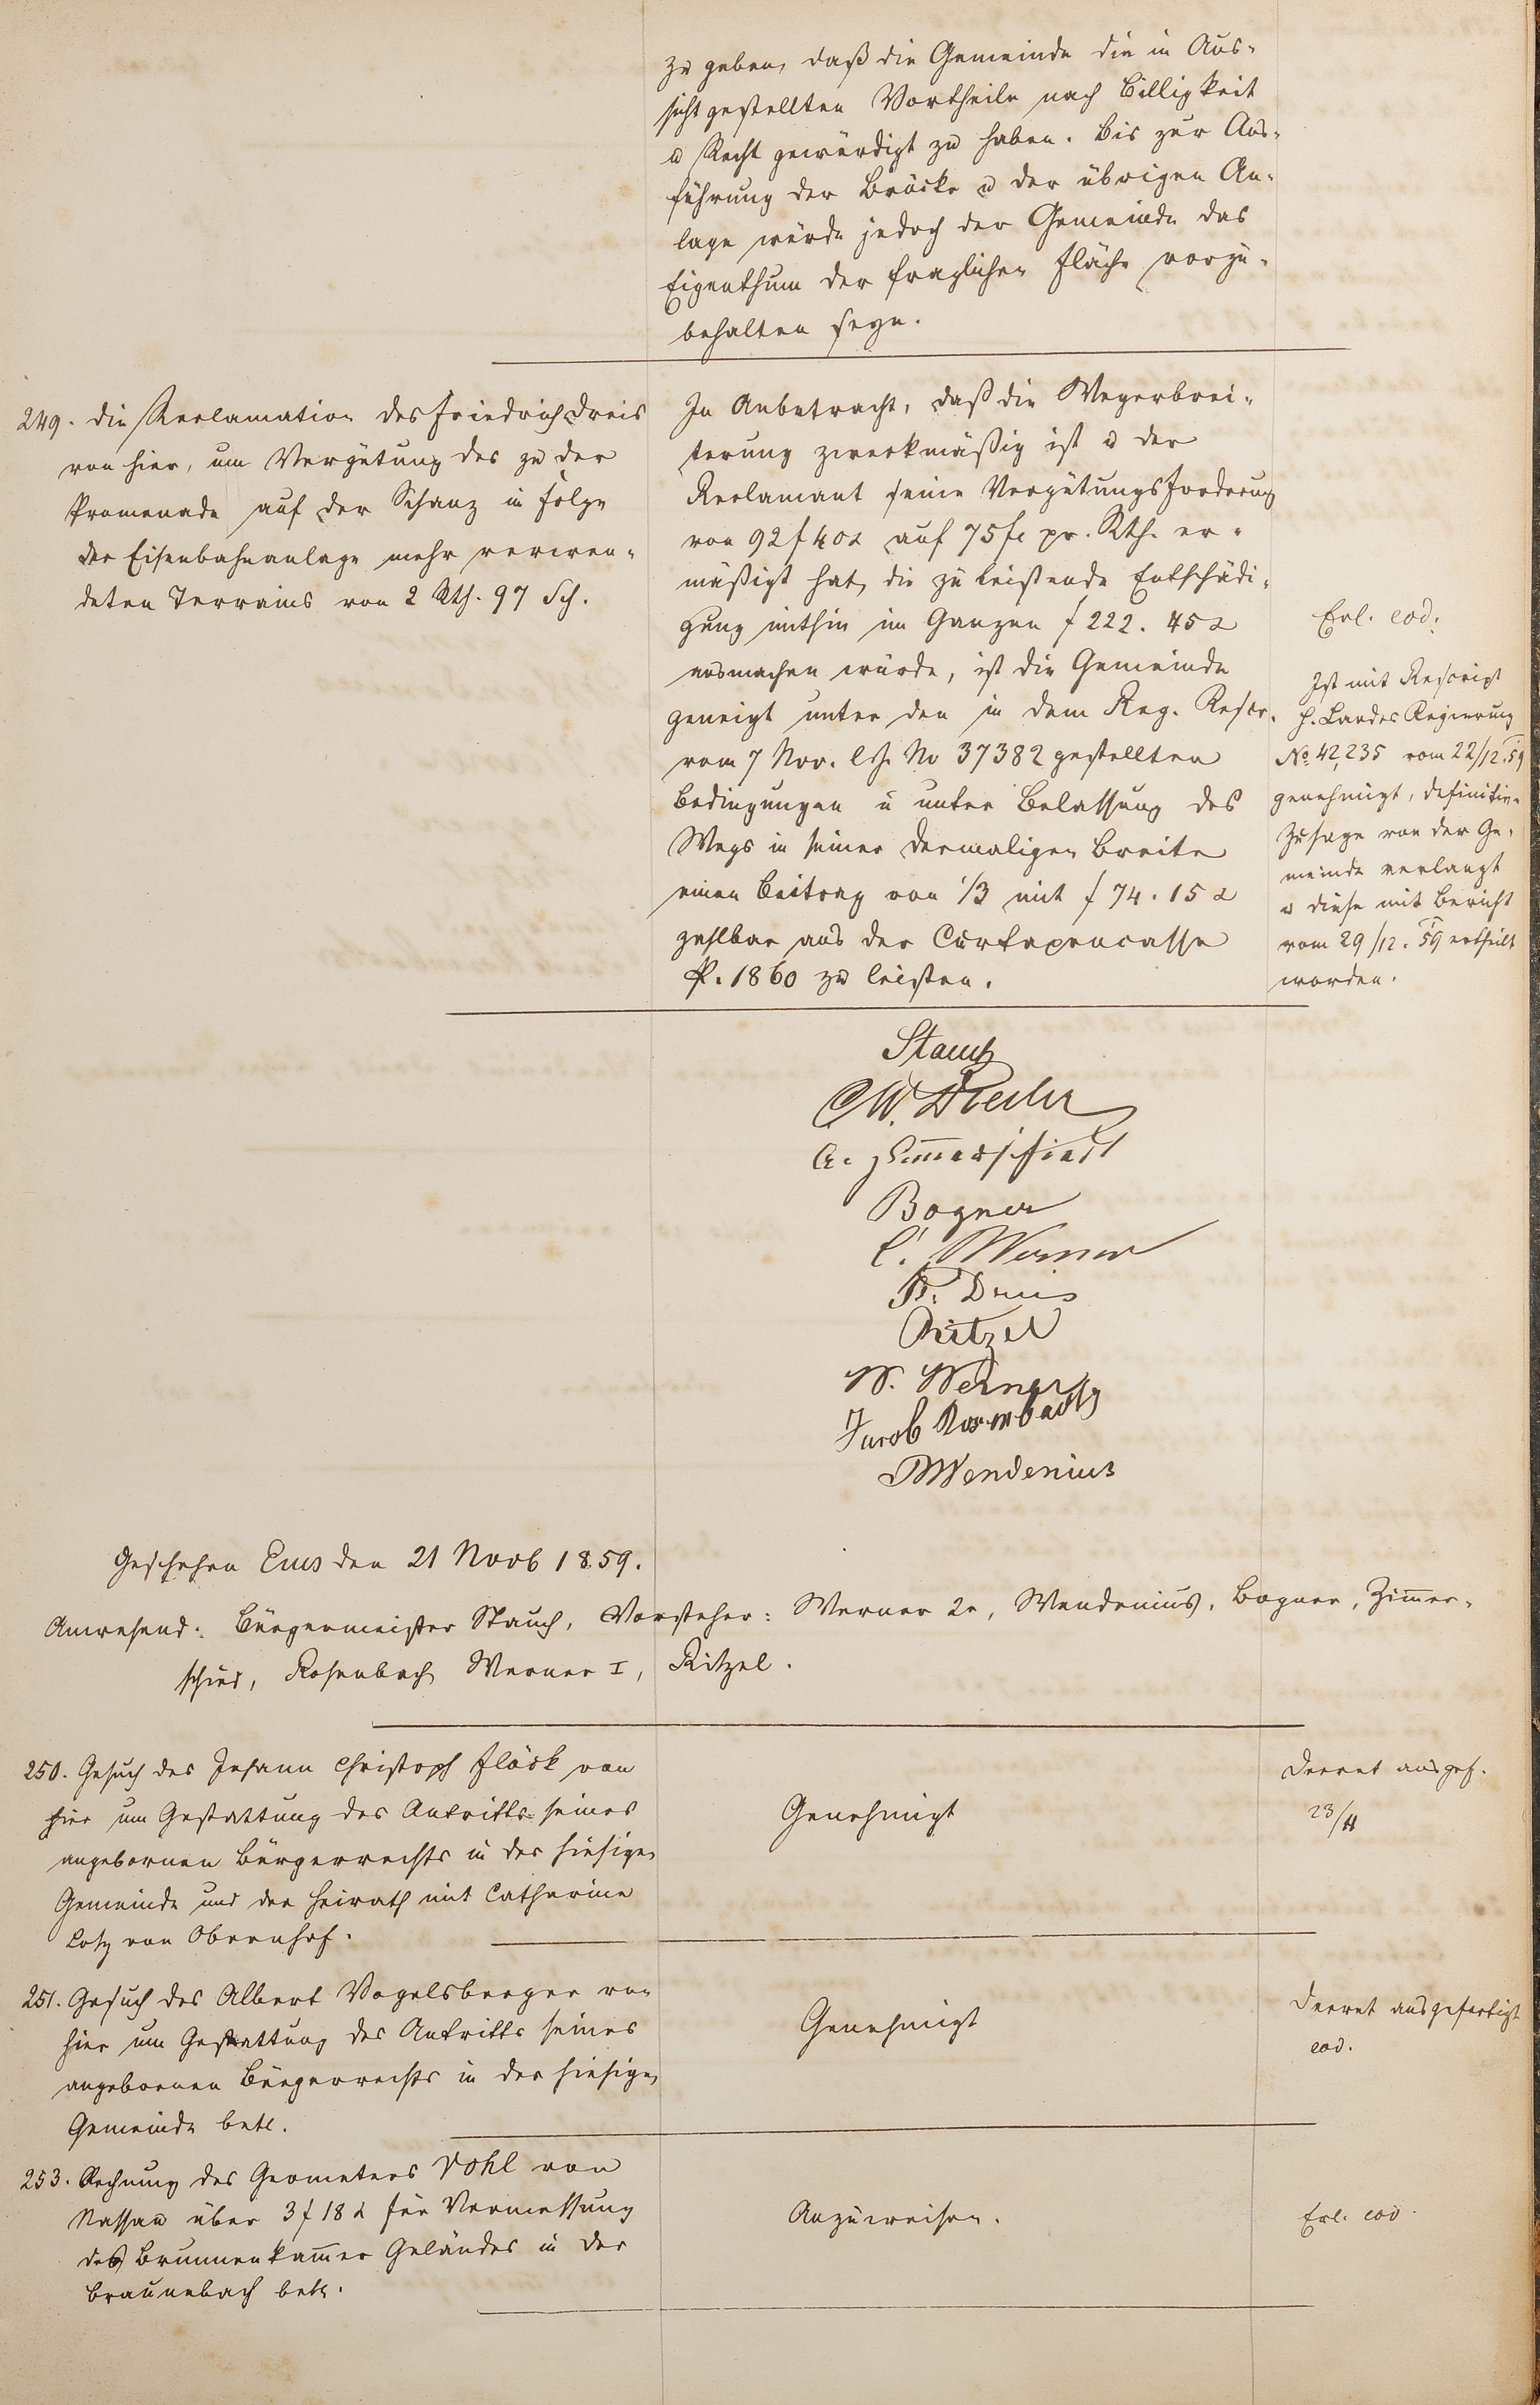 zu geben, daß die Gemeinde die in Aus-
sicht gestellten Vortheile nach Billigkeit
u Recht gewürdigt zu haben. Bis zur Aus-
führung der Brücke u der übrigen An-
lage würde jedoch der Gemeinde das
Eigenthum der fraglichen Fläche vorzu-
behalten seyn.
249. Die Reclamation des Friedrich Dreis
von hier, um Vergütung des zu der
Promenade auf der Schanz in Folge
der Eisenbahnanlage mehr verwen-
deten Terrains von 2 Rth. 97 Sch.
In Anbetracht, daß die Wegerbrei-
terung zweckmäßig ist u der
Reclamant seine Vergütungsforderung
von 92 f 40 x auf 75 fl pr. Rth. er-
mäßigt hat, die zu leistende Entschädi-
gung mithin im Ganzen f 222. 45 x
ausmachen würde, ist die Gemeinde
geneigt unter den in dem Reg. Rescr.
vom 7 Nov. l. J. No 37382 gestellten
Bedingungen u unter Belassung des
Wegs in seiner dermaligen Breite
einen Beitrag von 1/3 mit f 74. 15 x
zahlbar aus der Curtaxencasse
p. 1860 zu leisten.
Erl. eod.
Ist mit Rescript
H. Landes Regierung
No. 42,235 vom 22/12. 59
genehmigt, definitive
Zusage von der Ge-
meinde verlangt
u diese mit Bericht
vom 29/12. 59 ertheilt
worden.
Stauch
A. Zimmerschied
Bogner
C. Werner
Fr. Dreis
Ritzel
W. Werner
Jacob Rosenbach
Wendenius
Geschehen Ems den 21 Novb 1859.
Anwesend: Bürgermeister Stauch, Vorsteher: Werner 2r, Wendenius, Bogner, Zimmer-
schied, Rosenbach Werner I, Ritzel.
250. Gesuch des Johann Christoph Flöck von
hier um Gestattung des Antritts seines
angebornen Bürgerrechts in der hiesigen
Gemeinde und der Heirath mit Catharine
Lotz von Obernhof.
Genehmigt
Decret ausgef.
23/11
251. Gesuch des Albert Vogelsberger von
hier um Gestattung des Antritts seines
angebornen Bürgerrechts in der hiesigen
Gemeinde betr.
Genehmigt
Decret ausgefertigt
eod.
253. Rechnung des Geometers Vohl von
Nassau über 3 f 18 x für Vermessung
des Brunnenkammer Geländes in der
Braunebach betr.
Anzuweisen.
Erl. eod.